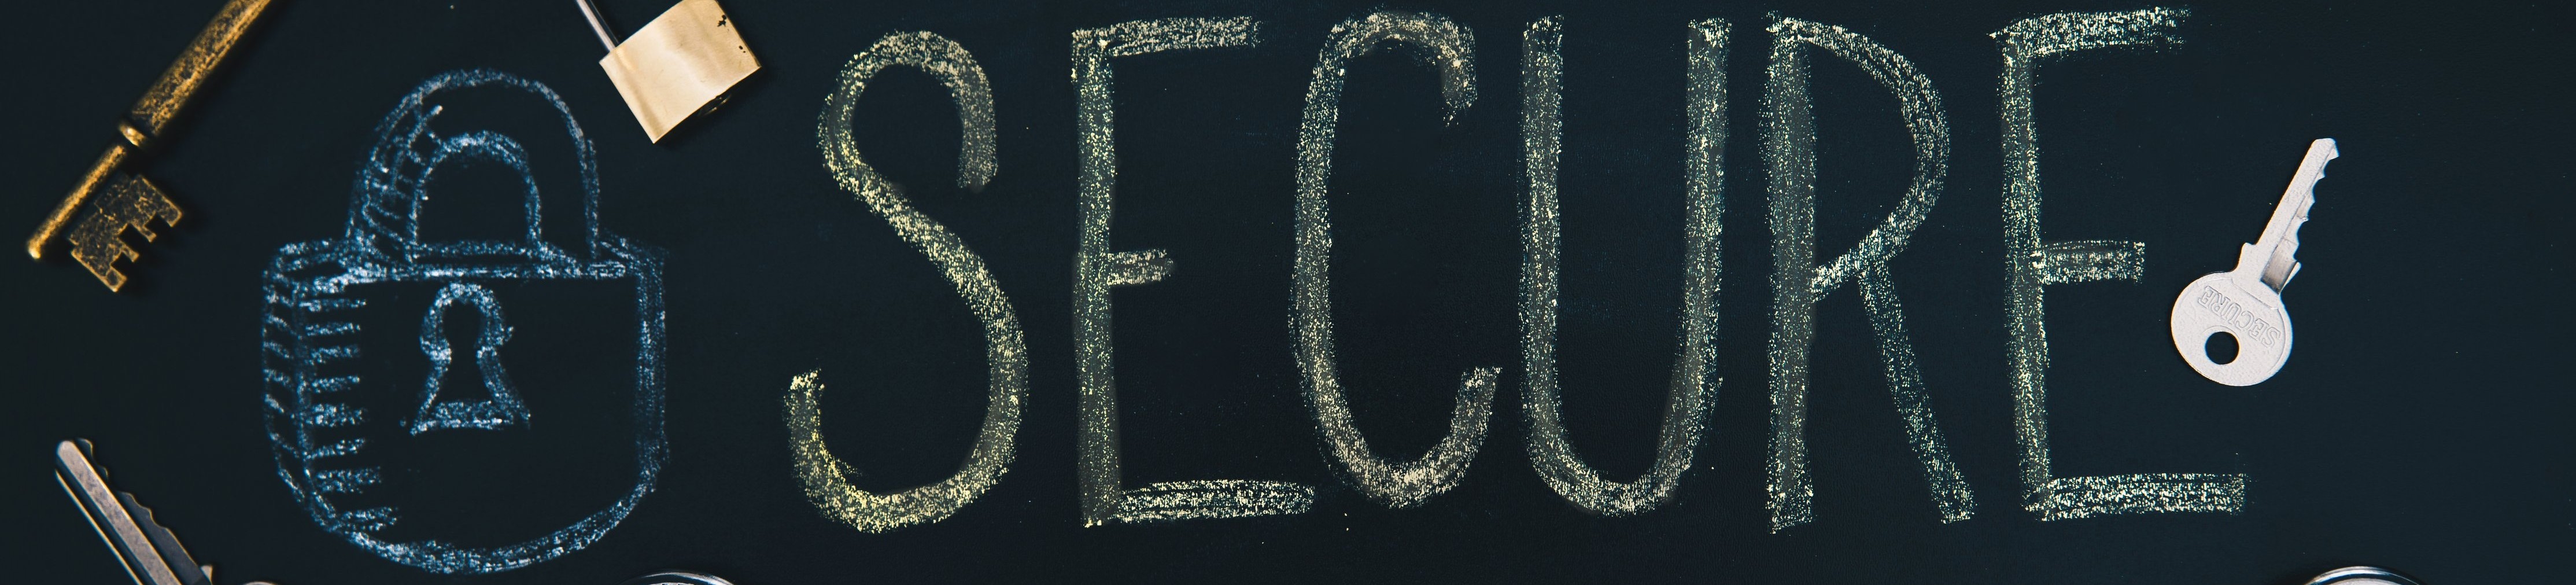 SECURE
SECURE